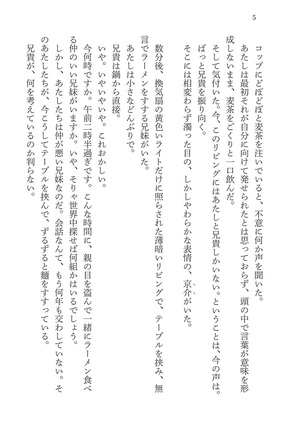 5
コップにどぼどぼと麦茶を注いでいると、不意に何か声を聞いた。
あたしは最初それが自分に向けて発せられたとは思っておらず、頭の中で言葉が意味を形
成しないまま、麦茶をごくりと一口飲んだ。
そして気付いた。今、このリビングにはあたしと兄貴しかいない。ということは、今の声は。
ばっと兄貴を振り向く。
そこには相変わらず濁った目の、しかしやわらかな表情の、京介がいた。
数分後、換気扇の黄色いライトだけに照らされた薄暗いリビングで、テーブルを挟み、無
言でラーメンをすする兄妹がいた。
あたしは小さなどんぶりで。
兄貴は鍋から直接。
いや。いやいやいや。これおかしい。
今何時ですか。午前二時半過ぎです。こんな時間に、親の目を盗んで一緒にラーメン食べ
る仲のいい兄妹がいますか。いや、そりゃ世界中探せば何組かはいるでしょう。
しかし、あたしたちは仲が悪い兄妹なのだ。会話なんて、もう何年も交わしていない。そ
のあたしたちが、今こうしてテーブルを挟んで、ずるずると麺をすすっている。
兄貴が、何を考えているのか判らない。